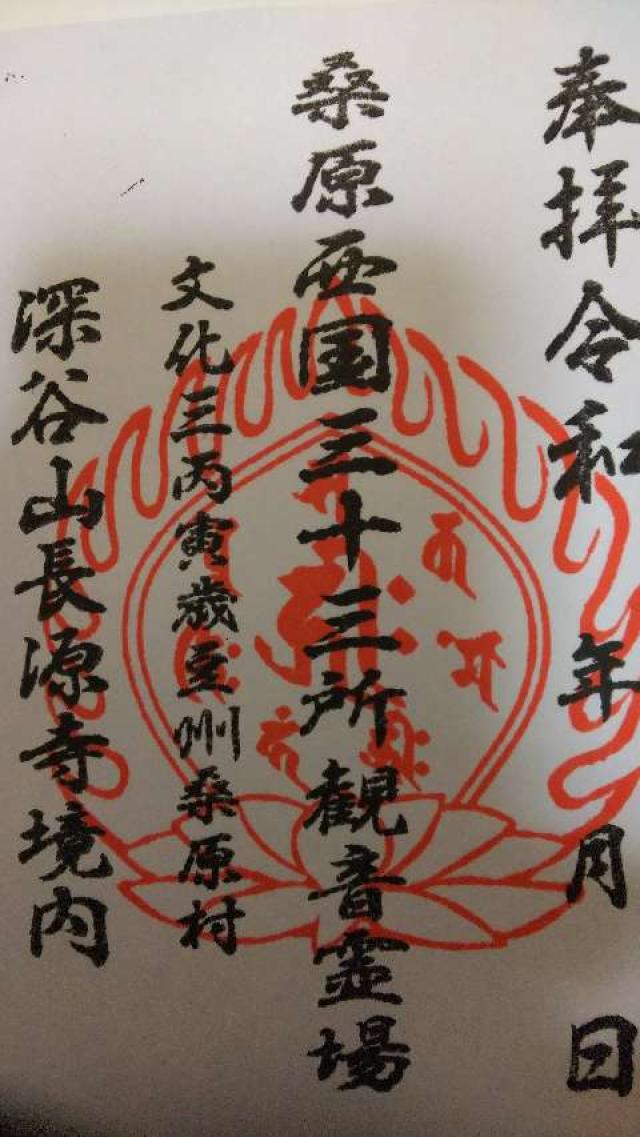 奉拝令和 年 月 日
桑原西国三十三所観音霊場
文化三丙寅歳豆州桑原村
深谷山長源寺境内